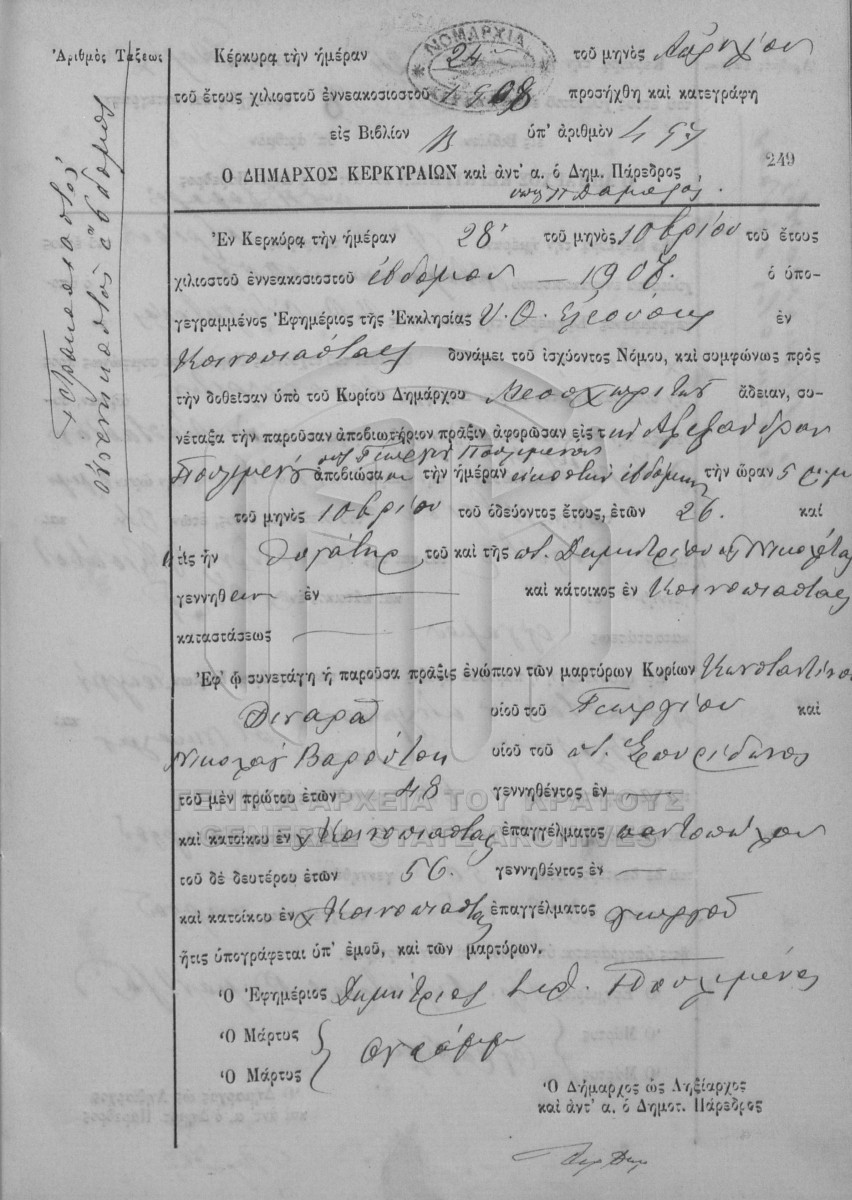 Ἀριθμὸς Τάξεως
Τετρακοσιοστὸς
ἐνενηκοστὸς ἕβδομος
ΝΟΜΑΡΧΙΑ
Κέρκυρα τὴν ἡμέραν 24 τοῦ μηνὸς Ἀπριλίου
τοῦ ἔτους χιλιοστοῦ ἐννεακοσιοστοῦ 1908 προσήχθη καὶ κατεγράφη
εἰς Βιβλίον Β ὑπ' ἀριθμὸν 497
249
Ο ΔΗΜΑΡΧΟΣ ΚΕΡΚΥΡΑΙΩΝ καὶ ἀντ' α. ὁ Δημ. Πάρεδρος,
Ἐν Κερκύρᾳ τὴν ἡμέραν 28 τοῦ μηνὸς 10βρίου τοῦ ἔτους
χιλιοστοῦ ἐννεακοσιοστοῦ ἑβδόμου — 1907. ὁ ὑπο-
γεγραμμένος Ἐφημέριος τῆς Ἐκκλησίας Υ. Θ. Ἐλεούσης ἐν
Κοινοπιάστας δυνάμει τοῦ ἰσχύοντος Νόμου, καὶ συμφώνως πρὸς
τὴν δοθεῖσαν ὑπὸ τοῦ Κυρίου Δημάρχου Μεσοχωριτῶν ἄδειαν, συ-
νέταξα τὴν παροῦσαν ἀποβιωτήριον πρᾶξιν ἀφορῶσαν εἰς τὴν Ἀλεξάνδραν
Γεωργίου Πουλιμένου
Πουλιμένη ἀποβιώσασαν τὴν ἡμέραν εἰκοστὴν ἑβδόμην τὴν ὥραν 5 μ.μ
τοῦ μηνὸς 10βρίου τοῦ ὁδεύοντος ἔτους, ἐτῶν 26. καὶ
ἥτις ἦν θυγάτηρ τοῦ καὶ τῆς ποτ. Δημητρίου καὶ Νικολέτας
γεννηθεῖσα ἐν — καὶ κάτοικος ἐν Κοινοπιάστας
καταστάσεως —
Ἐφ' ᾧ συνετάγη ἡ παροῦσα πρᾶξις ἐνώπιον τῶν μαρτύρων Κυρίων Κωνσταντίνου
Διναρᾶ υἱοῦ τοῦ Γεωργίου καὶ
Νικολάου Βαρούτση υἱοῦ τοῦ ποτ. Σπυρίδωνος
τοῦ μὲν πρώτου ἐτῶν 48 γεννηθέντος ἐν —
καὶ κατοίκου ἐν Κοινοπιάστας ἐπαγγέλματος παντοπώλου
τοῦ δὲ δευτέρου ἐτῶν 56. γεννηθέντος ἐν —
καὶ κατοίκου ἐν Κοινοπιάστας ἐπαγγέλματος γεωργοῦ
ἥτις ὑπογράφεται ὑπ' ἐμοῦ, καὶ τῶν μαρτύρων.
Ὁ Ἐφημέριος Δημήτριος Πουλιμένος
Ὁ Μάρτυς
Ὁ Μάρτυς
Ὁ Δήμαρχος ὡς Ληξίαρχος
καὶ ἀντ' α. ὁ Δημοτ. Πάρεδρος
ΓΕΝΙΚΑ ΑΡΧΕΙΑ ΤΟΥ ΚΡΑΤΟΥΣ
GENERAL STATE ARCHIVES